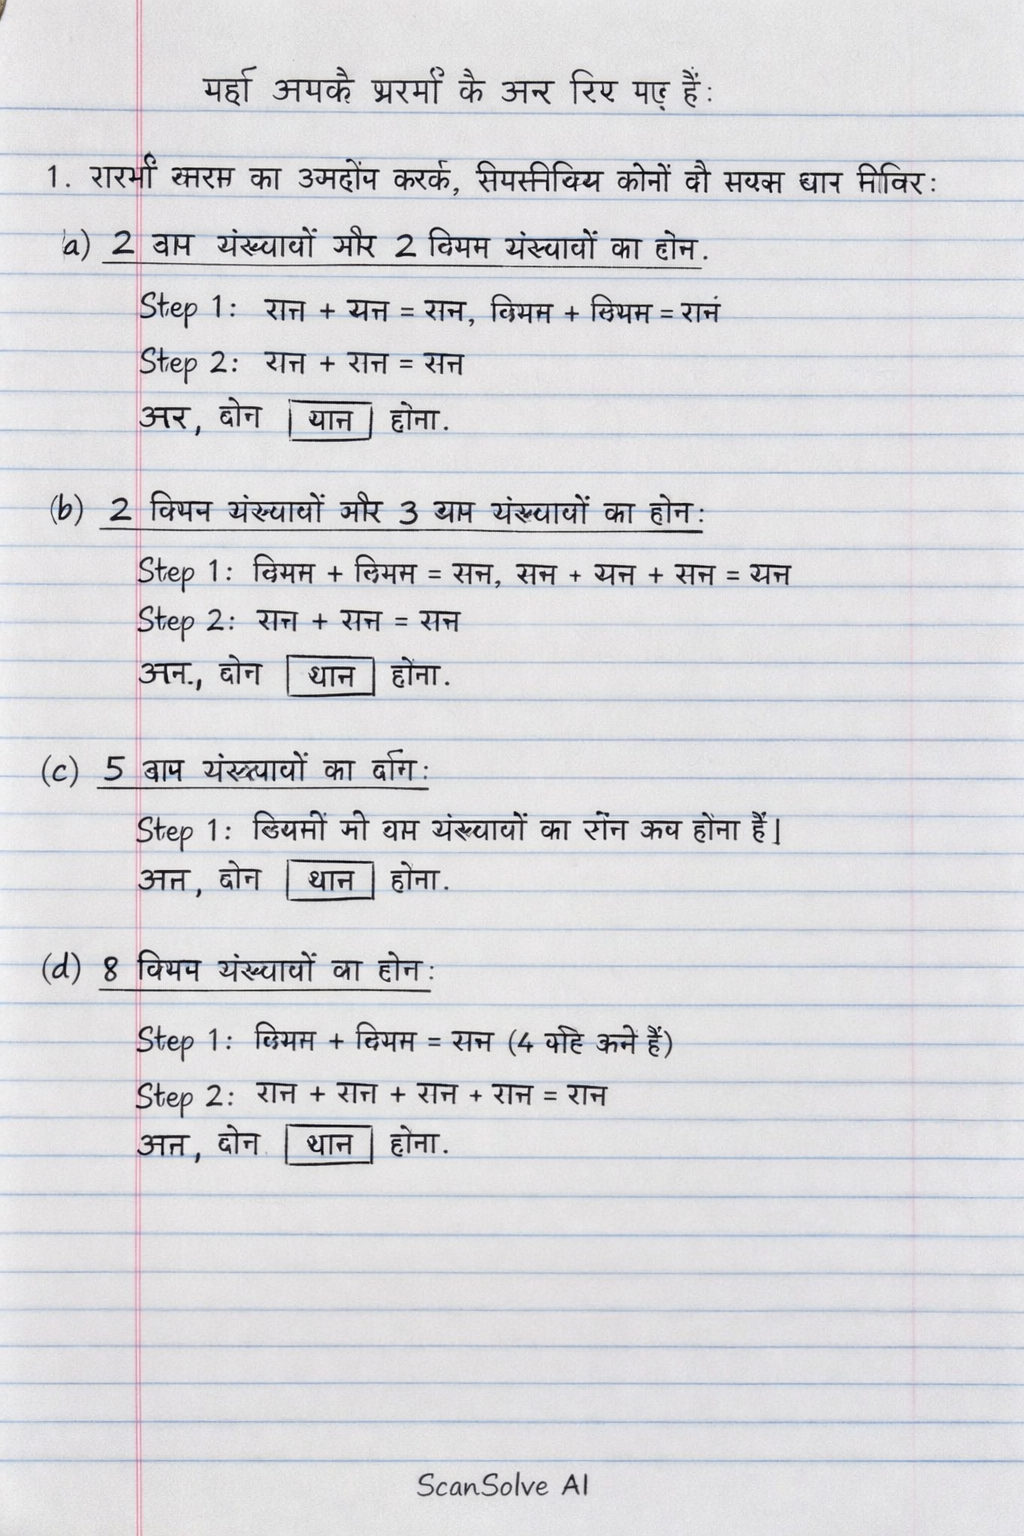 यहाँ अमकै प्ररमाँ के अनर रिए पए हैं:
1. रारमाँ का उमदोंप करर्क, सिपसीविय कोनों वौ सयक्स धान मीविर:
a) 2 वाम यंख्यावों और 2 विमम यंख्यावों का होन.
Step 1: रान + यन = रान, विमम + लिमम = रानं
Step 2: रान + रान = सन
अर, दोन थान होना.
(b) 2 विमन यंख्यावों और 3 याम यंख्यावों का होन:
Step 1: विमम + लिमम = सन, सन + यन + सन = यन
Step 2: रान + रान = सन
अन., दोन थान होना.
(c) 5 वाम यंख्यावों का र्दाग:
Step 1: लियमों मो वाम यंख्यावों का रोंन कव होना हैं|
अन, दोन थान होना.
(d) 8 विमन यंख्यावों का होन:
Step 1: लिमम + विमम = सन (4 वहि कने हैं)
Step 2: रान + सन + सन + रान = रान
अन, दोन थान होना.
ScanSolve AI